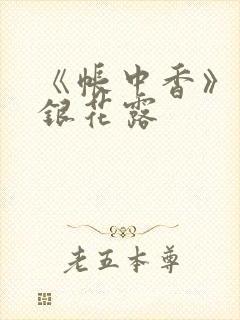 《帳中香》
銀花露
老五本尊